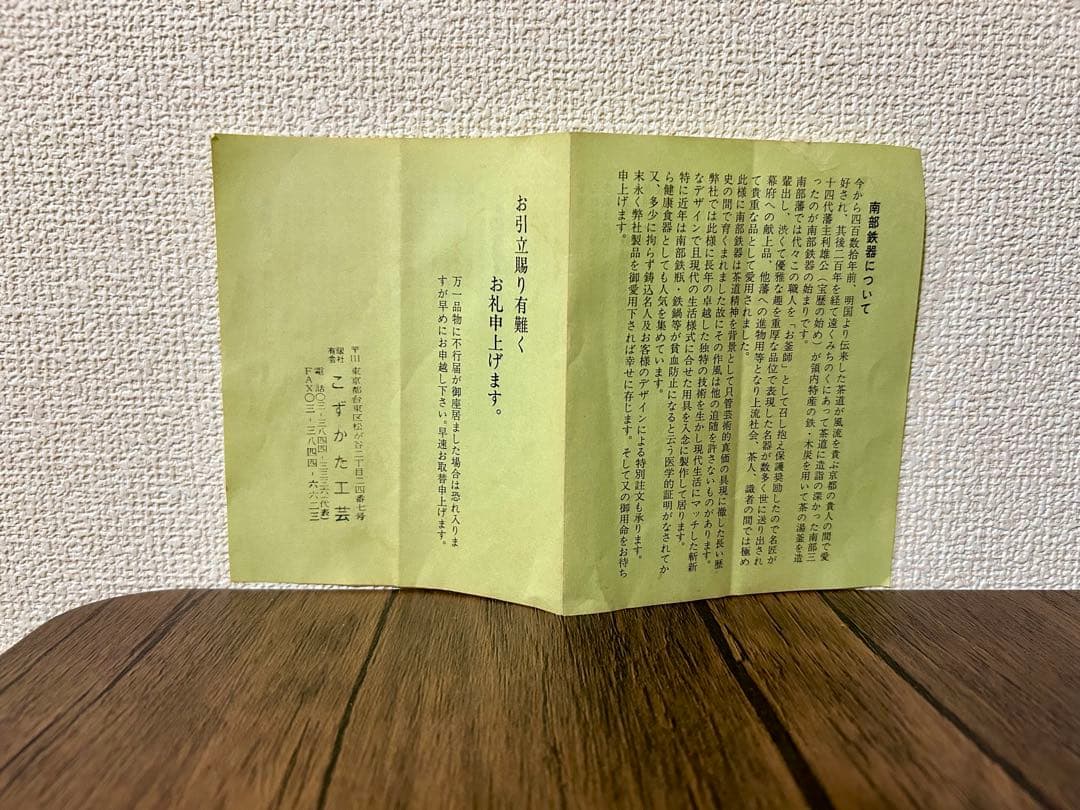 南部鉄器について
今から四百数拾年前、明国より伝来した茶道が風流を貴ぶ京都の貴人の間で愛
好され、其後二百年を経て遠くみちのくにあって茶道に造詣の深かった南部三
十四代藩主利雄公（宝歴の始め）が領内特産の鉄・木炭を用いて茶の湯釜を造
ったのが南部鉄器の始まりです。
南部藩では代々この職人を「お釜師」として召し抱え保護奨励したので名匠が
輩出し、渋くて優雅な趣を重厚な品位で表現した名器が数多く世に送り出され
幕府への献上品、他藩への進物用等となり上流社会、茶人、識者の間では極め
て貴重な品として愛用されました。
此様に南部鉄器は茶道精神を背景として只管芸術的真価の具現に徹した長い歴
史の間で育くまれました故にその作風は他の追随を許さないものがあります。
弊社では此様に長年の卓越した独特の技術を生かし現代生活にマッチした斬新
なデザインで且現代の生活様式に合せた用具を入念に製作して居ります。
特に近年は南部鉄瓶・鉄鍋等が貧血防止になると云う医学的証明がなされてか
ら健康食器としても人気を集めています。
又、多少に拘らず鋳込名人及お客様のデザインによる特別註文も承ります。
末永く弊社製品を御愛用下されば幸せに存じます。そして又の御用命をお待ち
申上げます。
お引立賜り有難く
お礼申上げます。
万一品物に不行届が御座居ました場合は恐れ入りま
すが早めにお申越し下さい。早速お取替申上げます。
〒111 東京都台東区松が谷二丁目二四番七号
有限会社 こずかた工芸
電話〇三-三八四四-三三三六㈹(代表)
FAX〇三-三八四四-六六二三